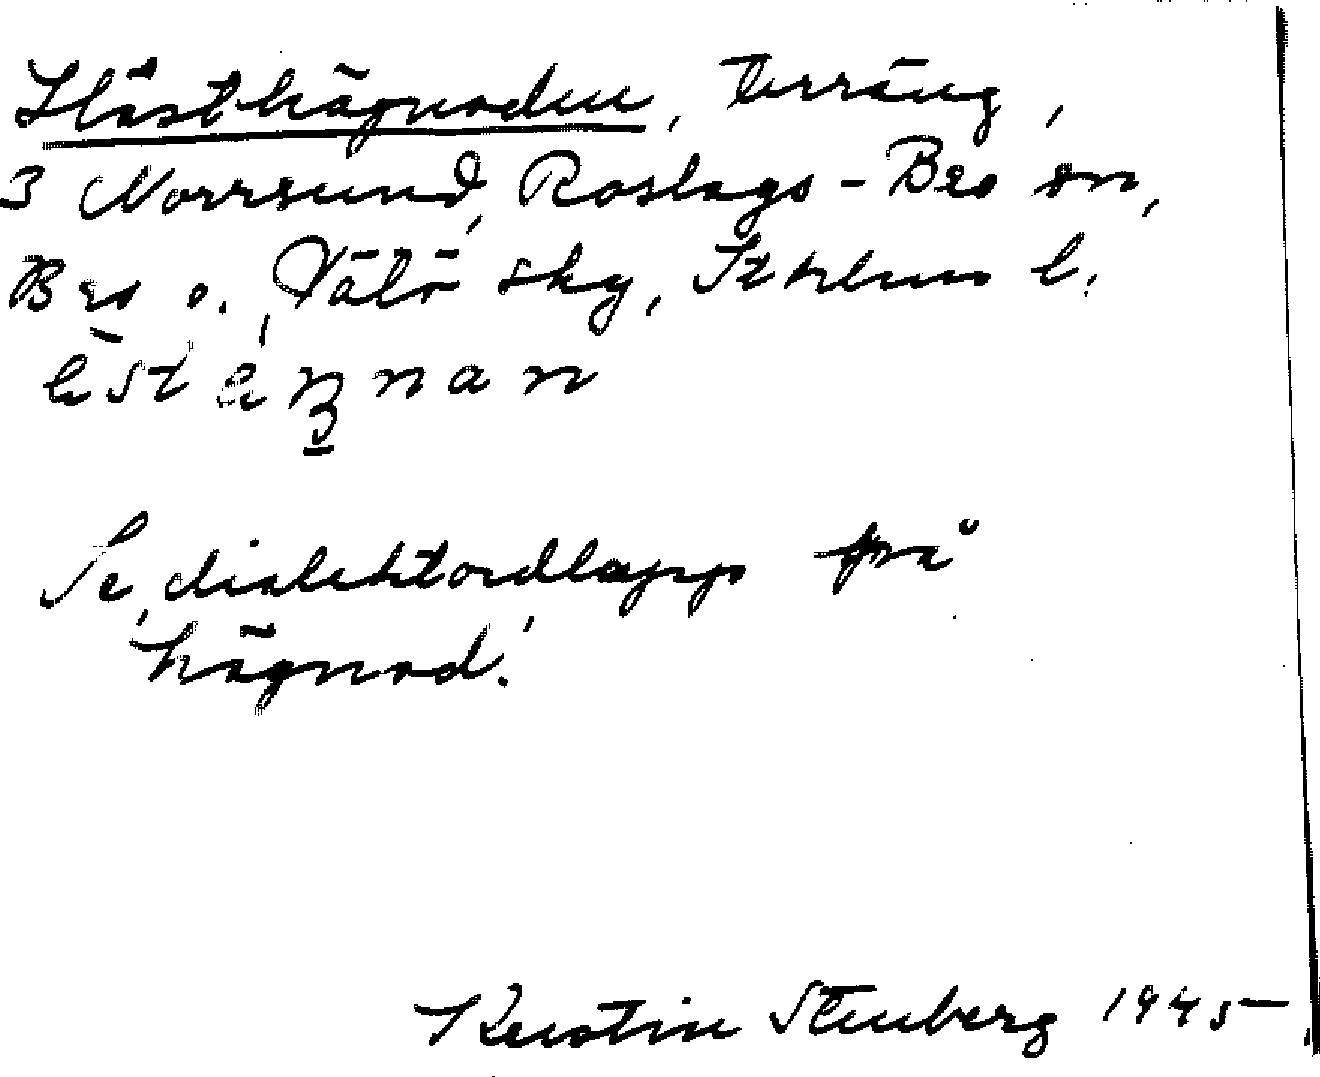 Hästhägnaden, terräng,
3 Norrsund, Roslags-Bro sn,
Bro o. Vätö sky, Sthlms l.
Se 'dialektordlapp på
hägnad.'
Kerstin Stenberg 1945